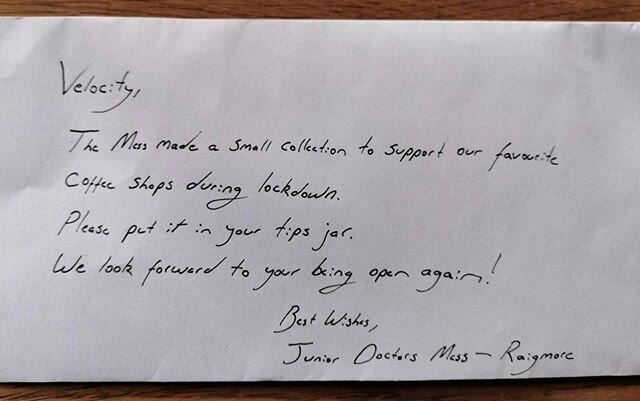 Velocity,
The Mess made a small collection to support our favourite
coffee shops during lockdown.
Please put it in your tips jar.
We look forward to your being open again!
Best Wishes,
Junior Doctors Mess – Raigmore